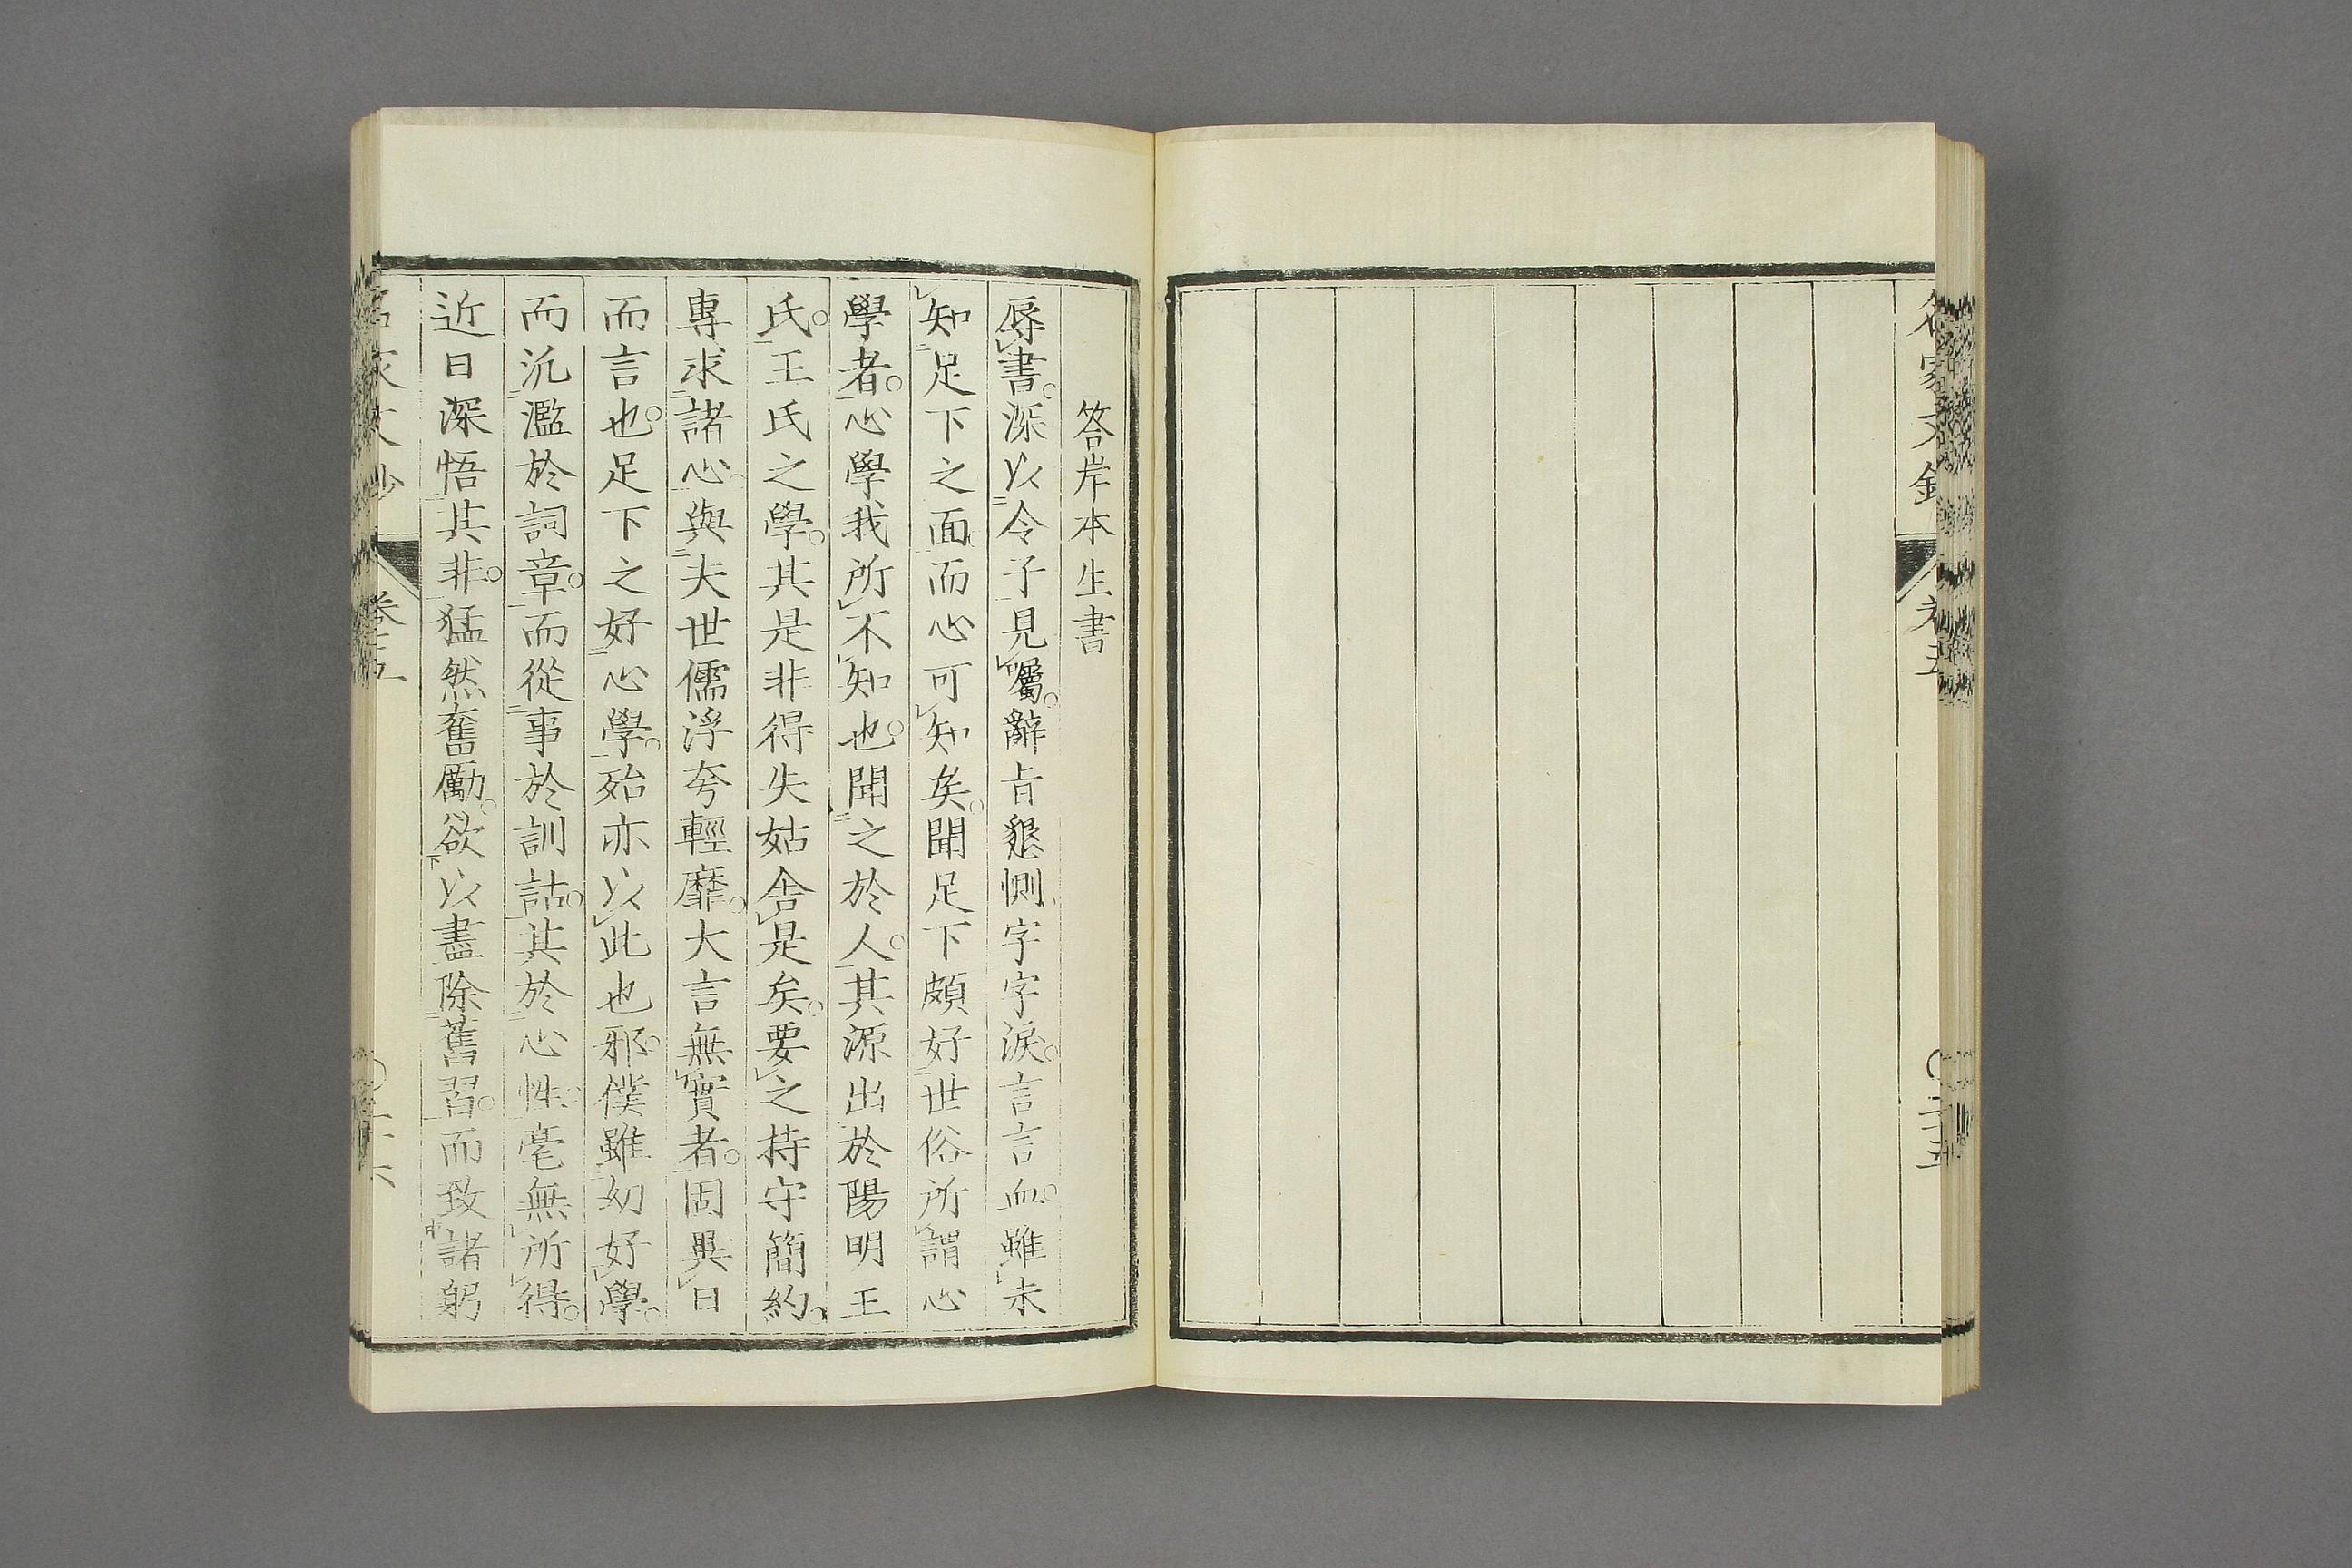 答岸本生書
辱書。深以令子見囑。辭旨懇惻字字淚。言言血。雖未
知足下之面而心可知矣。聞足下頗好世俗所謂心
學者。心學我所不知也。聞之於人。其源出於陽明王
氏。王氏之學。其是非得失姑舍是矣。要之持守簡約。
專求諸心。與夫世儒浮夸輕靡。大言無實者。固異日
而言也。足下之好心學。殆亦以此也邪。僕雖幼好學。
而汎濫於詞章。而從事於訓詁。其於心性。毫無所得。
近日深悟其非。猛然奮勵。欲以盡除舊習。而致諸躬